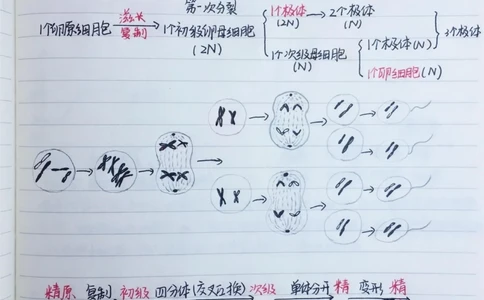 第一次分裂
1个卵原细胞 滋长 复制 1个初级卵母细胞 (2N)
1个极体 (2N) 2个极体 (N)
1个次级母细胞 (N)
1个极体(N)
1个卵细胞(N)
3个极体
精原 复制 初级 四分体(交叉互换) 次级 单体分开 精 变形 精